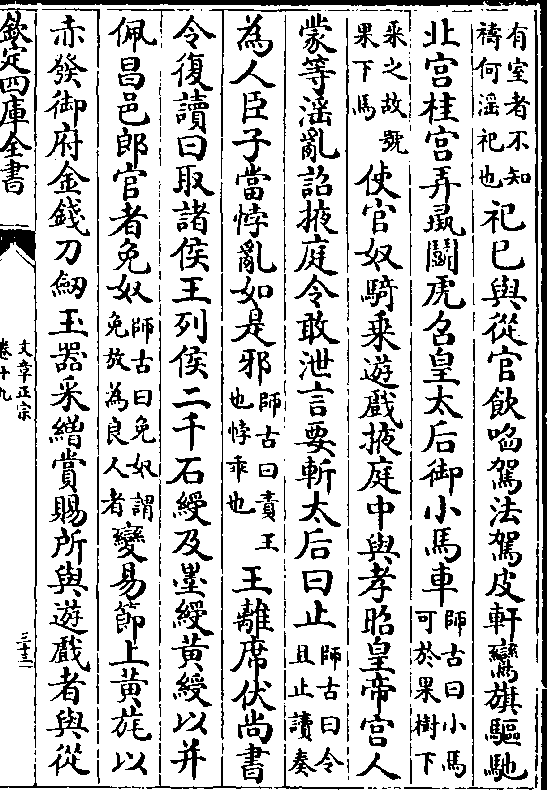 有室者不知
禱何淫祀也
祀已與從官飲啗駕法駕皮軒鸞旗驅馳
北宮桂宮弄彘鬬虎名皇太后御小馬車
師古曰小馬
可於果樹下
乘之故號
果下馬
使官奴騎乘遊戲掖庭中與孝昭皇帝宮人
蒙等淫亂詔掖庭令敢泄言要斬太后曰止
師古曰令
且止讀奏
為人臣子當悖亂如是邪
師古曰責王
也悖乖也
王離席伏尚書
令復讀曰取諸侯王列侯二千石綬及墨綬黄綬以并
佩昌邑郎官者免奴
師古曰免奴謂
免放為良人者
變易節上黄旄以
赤發御府金錢刀劒玉器采繒賞賜所與遊戲者與從
欽定四庫全書
文章正宗
卷十九
三十三